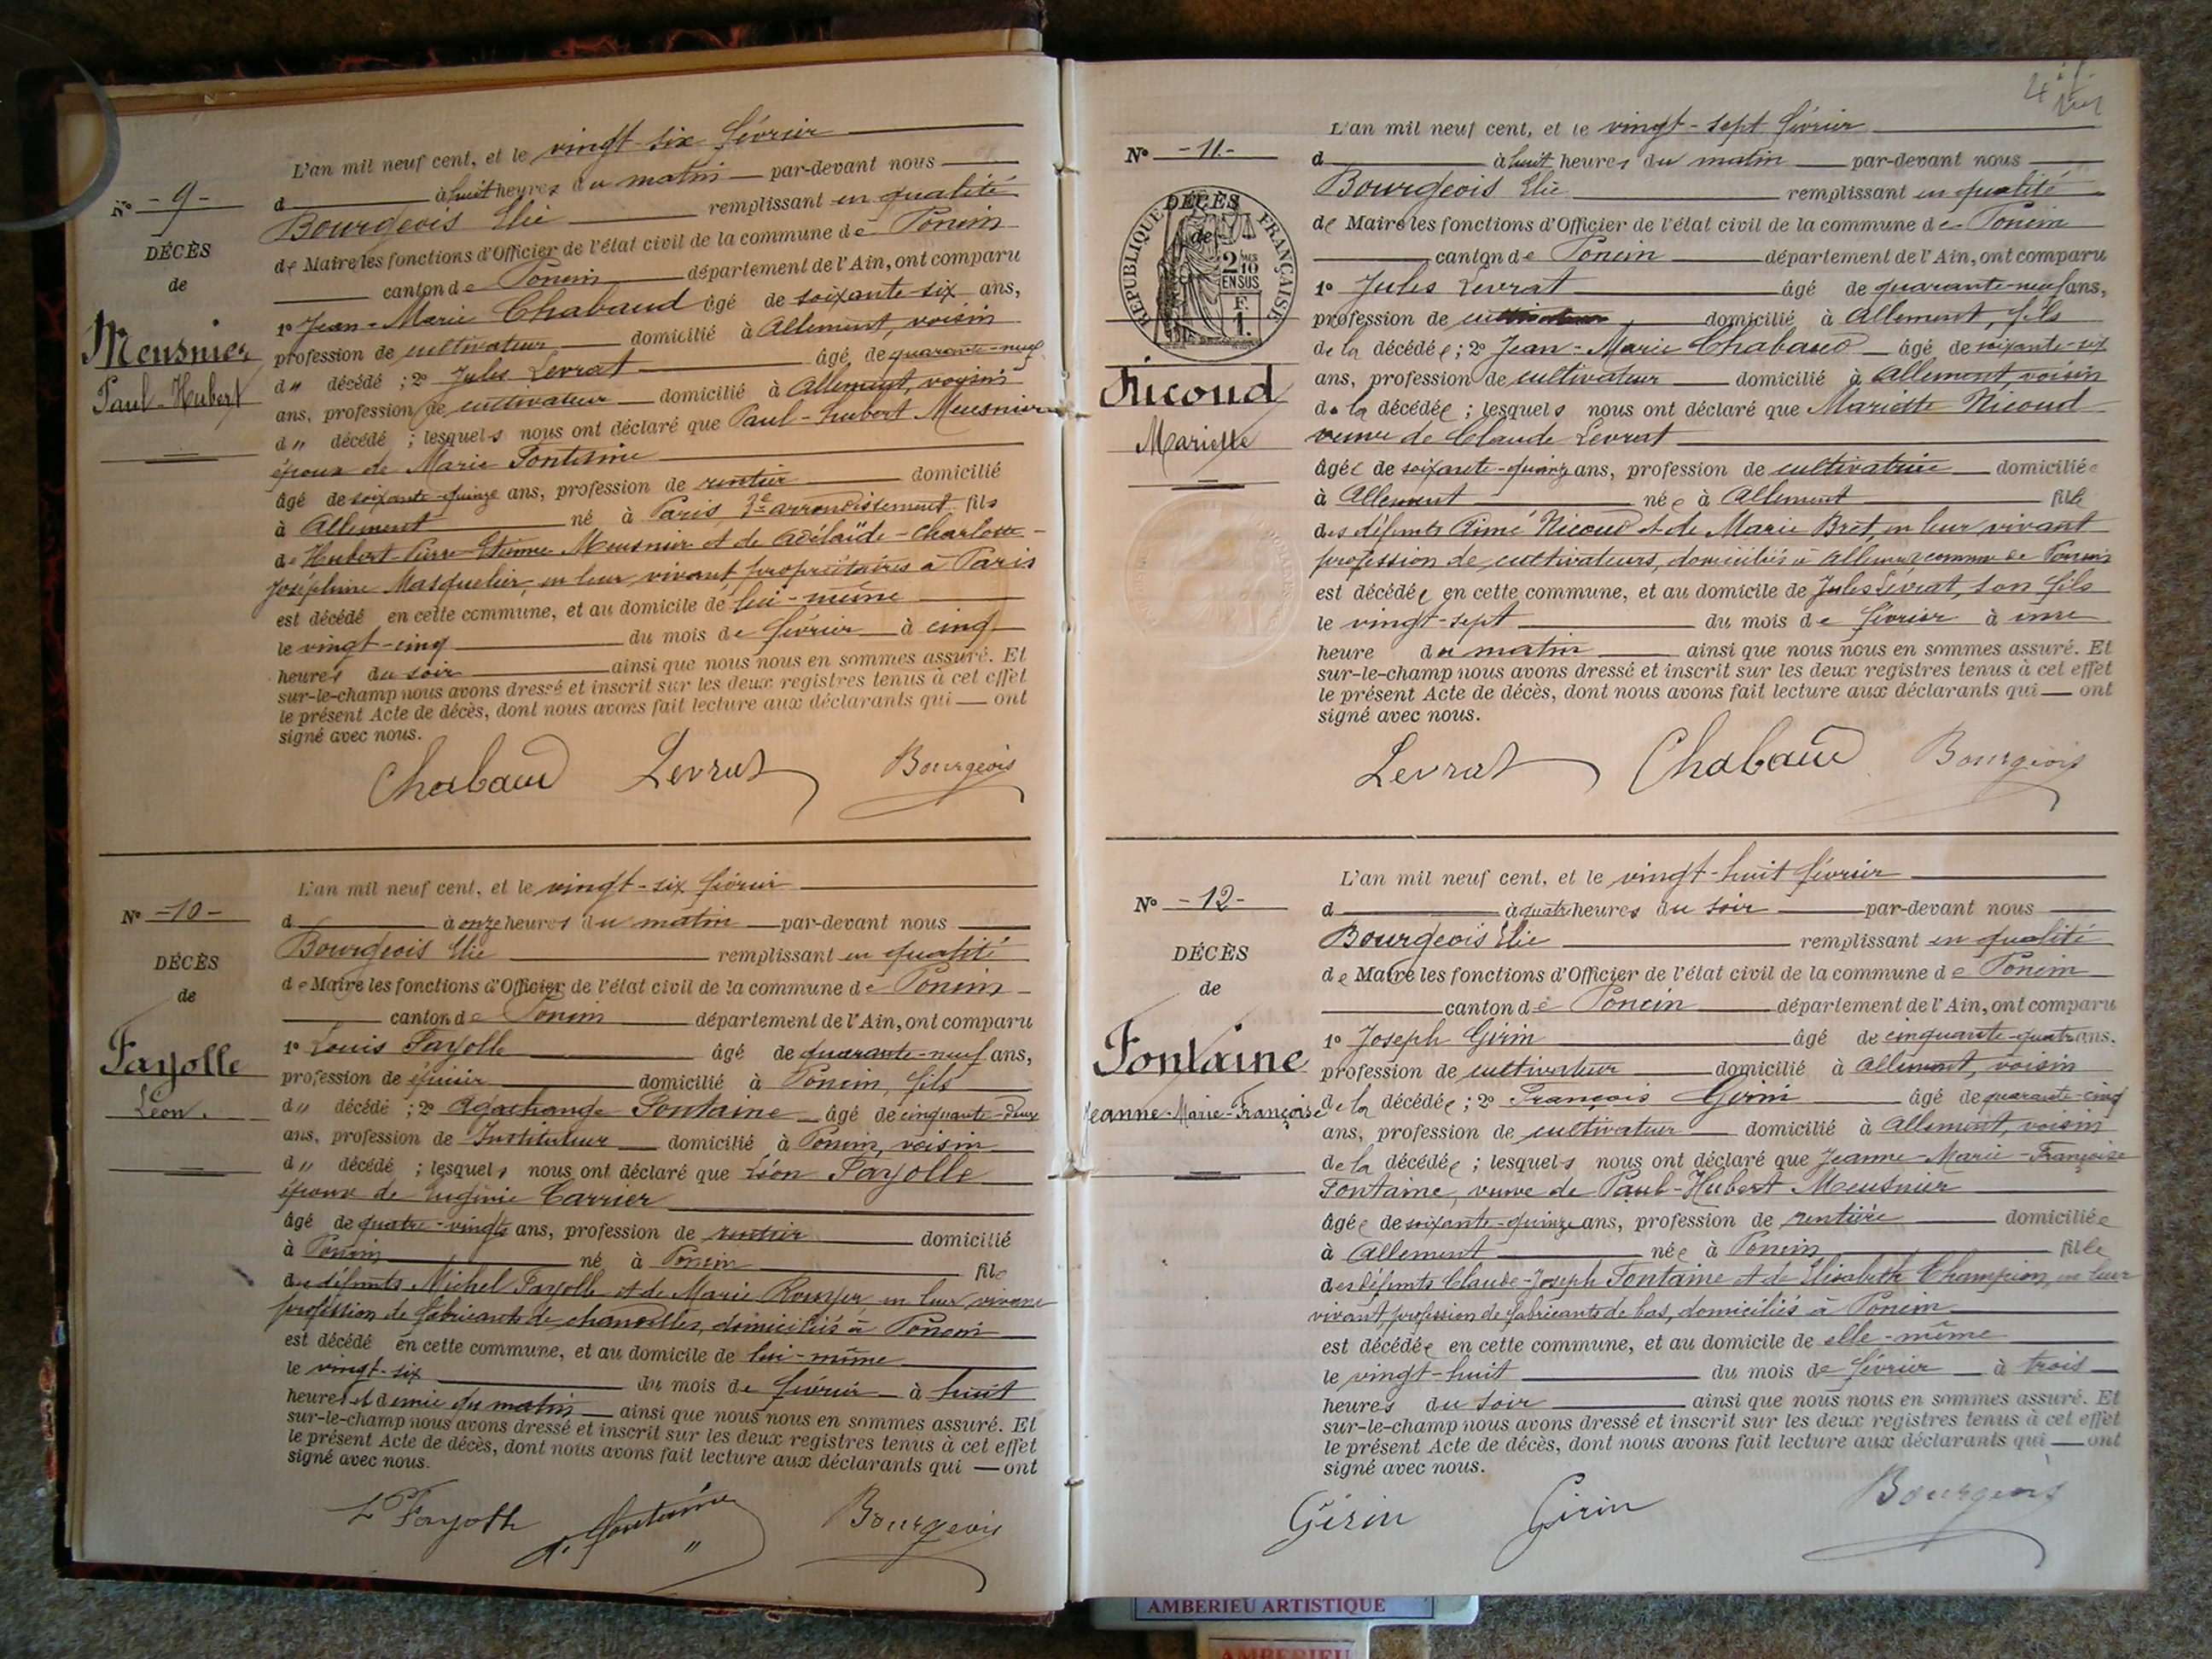 N° - 9 -
DÉCÈS
de
Meusnier
Paul-Hubert
L'an mil neuf cent, et le vingt-six février
d à huit heures du matin par-devant nous
Bourgeois Elie remplissant en qualité
de Maire les fonctions d'Officier de l'état civil de la commune de Poncin
canton de Poncin département de l'Ain, ont comparu
1° Jean-Marie Chabaud âgé de soixante-six ans,
profession de cultivateur domicilié à Allement, voisin
d" décédé ; 2° Jules Levrat âgé de quarante-neuf
ans, profession de cultivateur domicilié à Allement, voisin
d" décédé ; lesquels nous ont déclaré que Paul-Hubert Meusnier
époux de Marie Fontaine
âgé de soixante-quinze ans, profession de rentier domicilié
à Allement né à Paris, arrondissement fils
de Hubert-Pierre-Etienne Meusnier et de Adélaïde-Charlotte-
Joséphine Masquelier, en leur vivant, propriétaires à Paris
est décédé en cette commune, et au domicile de lui-même
le vingt-cinq du mois de février à cinq
heures du soir ainsi que nous nous en sommes assuré. Et
sur-le-champ nous avons dressé et inscrit sur les deux registres tenus à cet effet
le présent Acte de décès, dont nous avons fait lecture aux déclarants qui ont
signé avec nous.
Chabaud Levrat Bourgeois
N° -10-
DÉCÈS
de
Fayolle
Léon.
L'an mil neuf cent, et le vingt-six février
d à onze heures du matin par-devant nous
Bourgeois Elie remplissant en qualité
de Maire les fonctions d'Officier de l'état civil de la commune de Poncin
canton de Poncin département de l'Ain, ont comparu
1° Louis Fayolle âgé de quarante-neuf ans,
profession de épicier domicilié à Poncin, fils
d" décédé ; 2° Agathange Fontaine âgé de cinquante-deux
ans, profession de Instituteur domicilié à Poncin, voisin
d" décédé ; lesquels nous ont déclaré que Léon Fayolle
époux de Eugénie Carrier
âgé de quatre-vingts ans, profession de rentier domicilié
à Poncin né à Poncin fils
des défunts Michel Fayolle et de Marie en leur vivant
profession de fabricants de chandelles, domiciliés à Poncin
est décédé en cette commune, et au domicile de lui-même
le vingt-six du mois de février à huit
heures et demie du matin ainsi que nous nous en sommes assuré. Et
sur-le-champ nous avons dressé et inscrit sur les deux registres tenus à cet effet
le présent Acte de décès, dont nous avons fait lecture aux déclarants qui ont
signé avec nous.
L Fayolle A. Fontaine Bourgeois
4
N° -11-
RÉPUBLIQUE FRANÇAISE
DÉCÈS
de
2 MES 10 EN SUS
F.
1.
Nicoud
Mariette
L'an mil neuf cent, et le vingt-sept février
d à huit heures du matin par-devant nous
Bourgeois Elie remplissant en qualité
de Maire les fonctions d'Officier de l'état civil de la commune de Poncin
canton de Poncin département de l'Ain, ont comparu
1° Jules Levrat âgé de quarante-neuf ans,
profession de cultivateur domicilié à Allement, fils
de la décédée ; 2° Jean-Marie Chabaud âgé de soixante-six
ans, profession de cultivateur domicilié à Allement, voisin
de la décédée ; lesquels nous ont déclaré que Mariette Nicoud
veuve de Claude Levrat
âgée de soixante-quinze ans, profession de cultivatrice domiciliée
à Allement née à Allement fille
des défunts Aimé Nicoud et de Marie Bret, en leur vivant
profession de cultivateurs, domiciliés à Allement commune de Poncin
est décédée en cette commune, et au domicile de Jules Levrat, son fils
le vingt-sept du mois de février à une
heure du matin ainsi que nous nous en sommes assuré. Et
sur-le-champ nous avons dressé et inscrit sur les deux registres tenus à cet effet
le présent Acte de décès, dont nous avons fait lecture aux déclarants qui ont
signé avec nous.
Levrat Chabaud Bourgeois
N° -12-
DÉCÈS
de
Fontaine
Jeanne-Marie-Françoise
L'an mil neuf cent, et le vingt-huit février
d à quatre heures du soir par-devant nous
Bourgeois Elie remplissant en qualité
de Maire les fonctions d'Officier de l'état civil de la commune de Poncin
canton de Poncin département de l'Ain, ont comparu
1° Joseph Girin âgé de cinquante-quatre ans.
profession de cultivateur domicilié à Allement, voisin
de la décédée ; 2° François Girin âgé de quarante-cinq
ans, profession de cultivateur domicilié à Allement, voisin
de la décédée ; lesquels nous ont déclaré que Jeanne-Marie-Françoise
Fontaine, veuve de Paul-Hubert Meusnier
âgée de soixante-quinze ans, profession de rentière domiciliée
à Allement née à Poncin fille
des défunts Claude-Joseph Fontaine et de Elisabeth Champion, en leur
vivant, profession de fabricants de bas, domiciliés à Poncin
est décédée en cette commune, et au domicile de elle-même
le vingt-huit du mois de février à trois
heures du soir ainsi que nous nous en sommes assuré. Et
sur-le-champ nous avons dressé et inscrit sur les deux registres tenus à cet effet
le présent Acte de décès, dont nous avons fait lecture aux déclarants qui ont
signé avec nous.
Girin Girin Bourgeois
AMBERIEU ARTISTIQUE
AMBERIEU